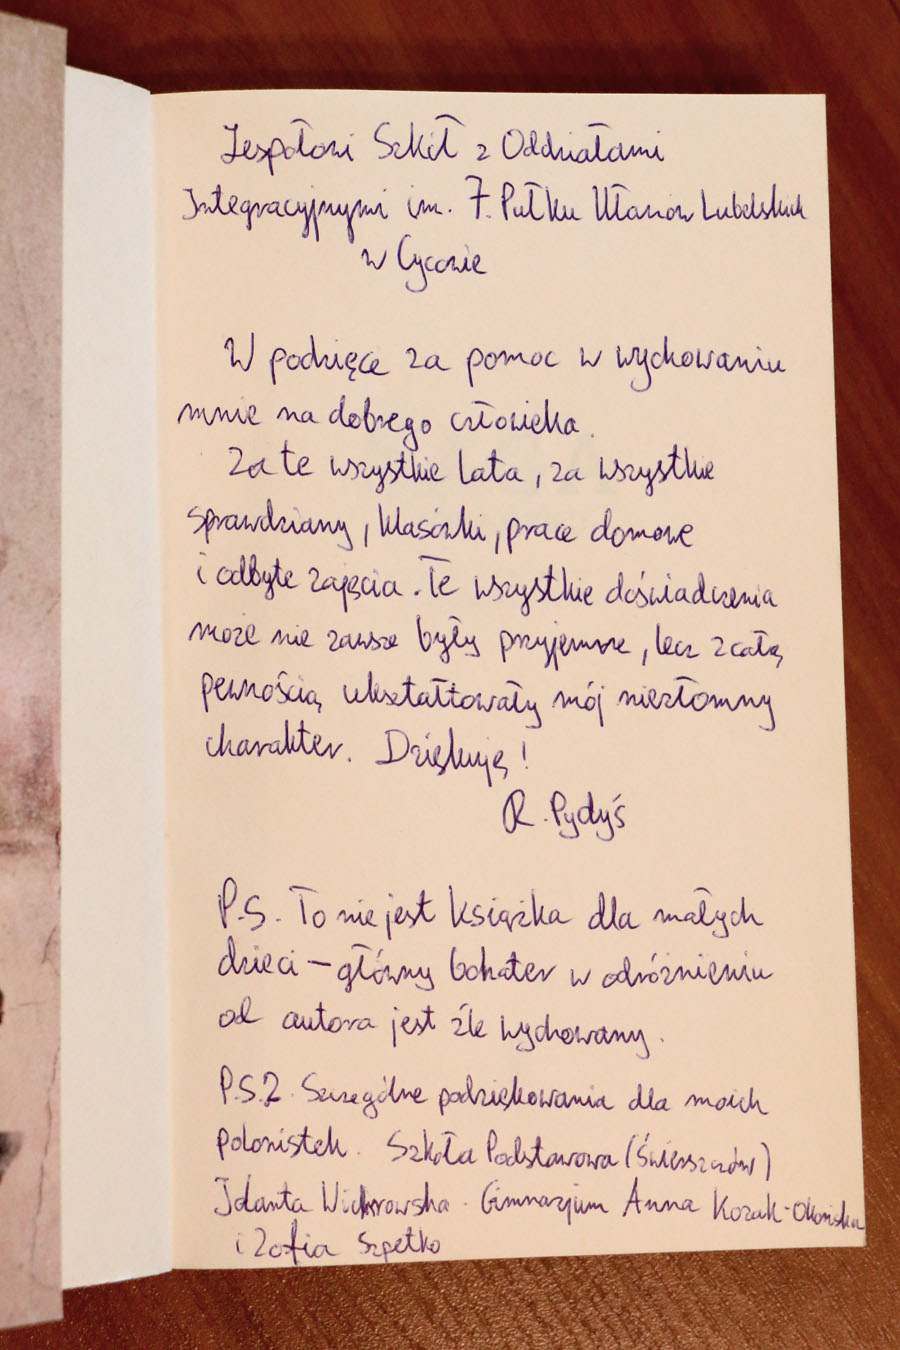 Zespołowi Szkół z Oddziałami
Integracyjnymi im. 7. Pułku Ułanów Lubelskich
w Cycowie
W podzięce za pomoc w wychowaniu
mnie na dobrego człowieka.
Za te wszystkie lata, za wszystkie
sprawdziany, klasówki, prace domowe
i odbyte zajęcia. Te wszystkie doświadczenia
może nie zawsze były przyjemne, lecz z całą
pewnością ukształtowały mój niezłomny
charakter. Dziękuję!
R. Pydyś
P.S. To nie jest książka dla małych
dzieci – główny bohater w odróżnieniu
od autora jest źle wychowany.
P.S.2. Szczególne podziękowania dla moich
polonistek. Szkoła Podstawowa (Świerszczów)
Jolanta Wichrowska. Gimnazjum Anna Kozak-Okońska
i Zofia Szpetko